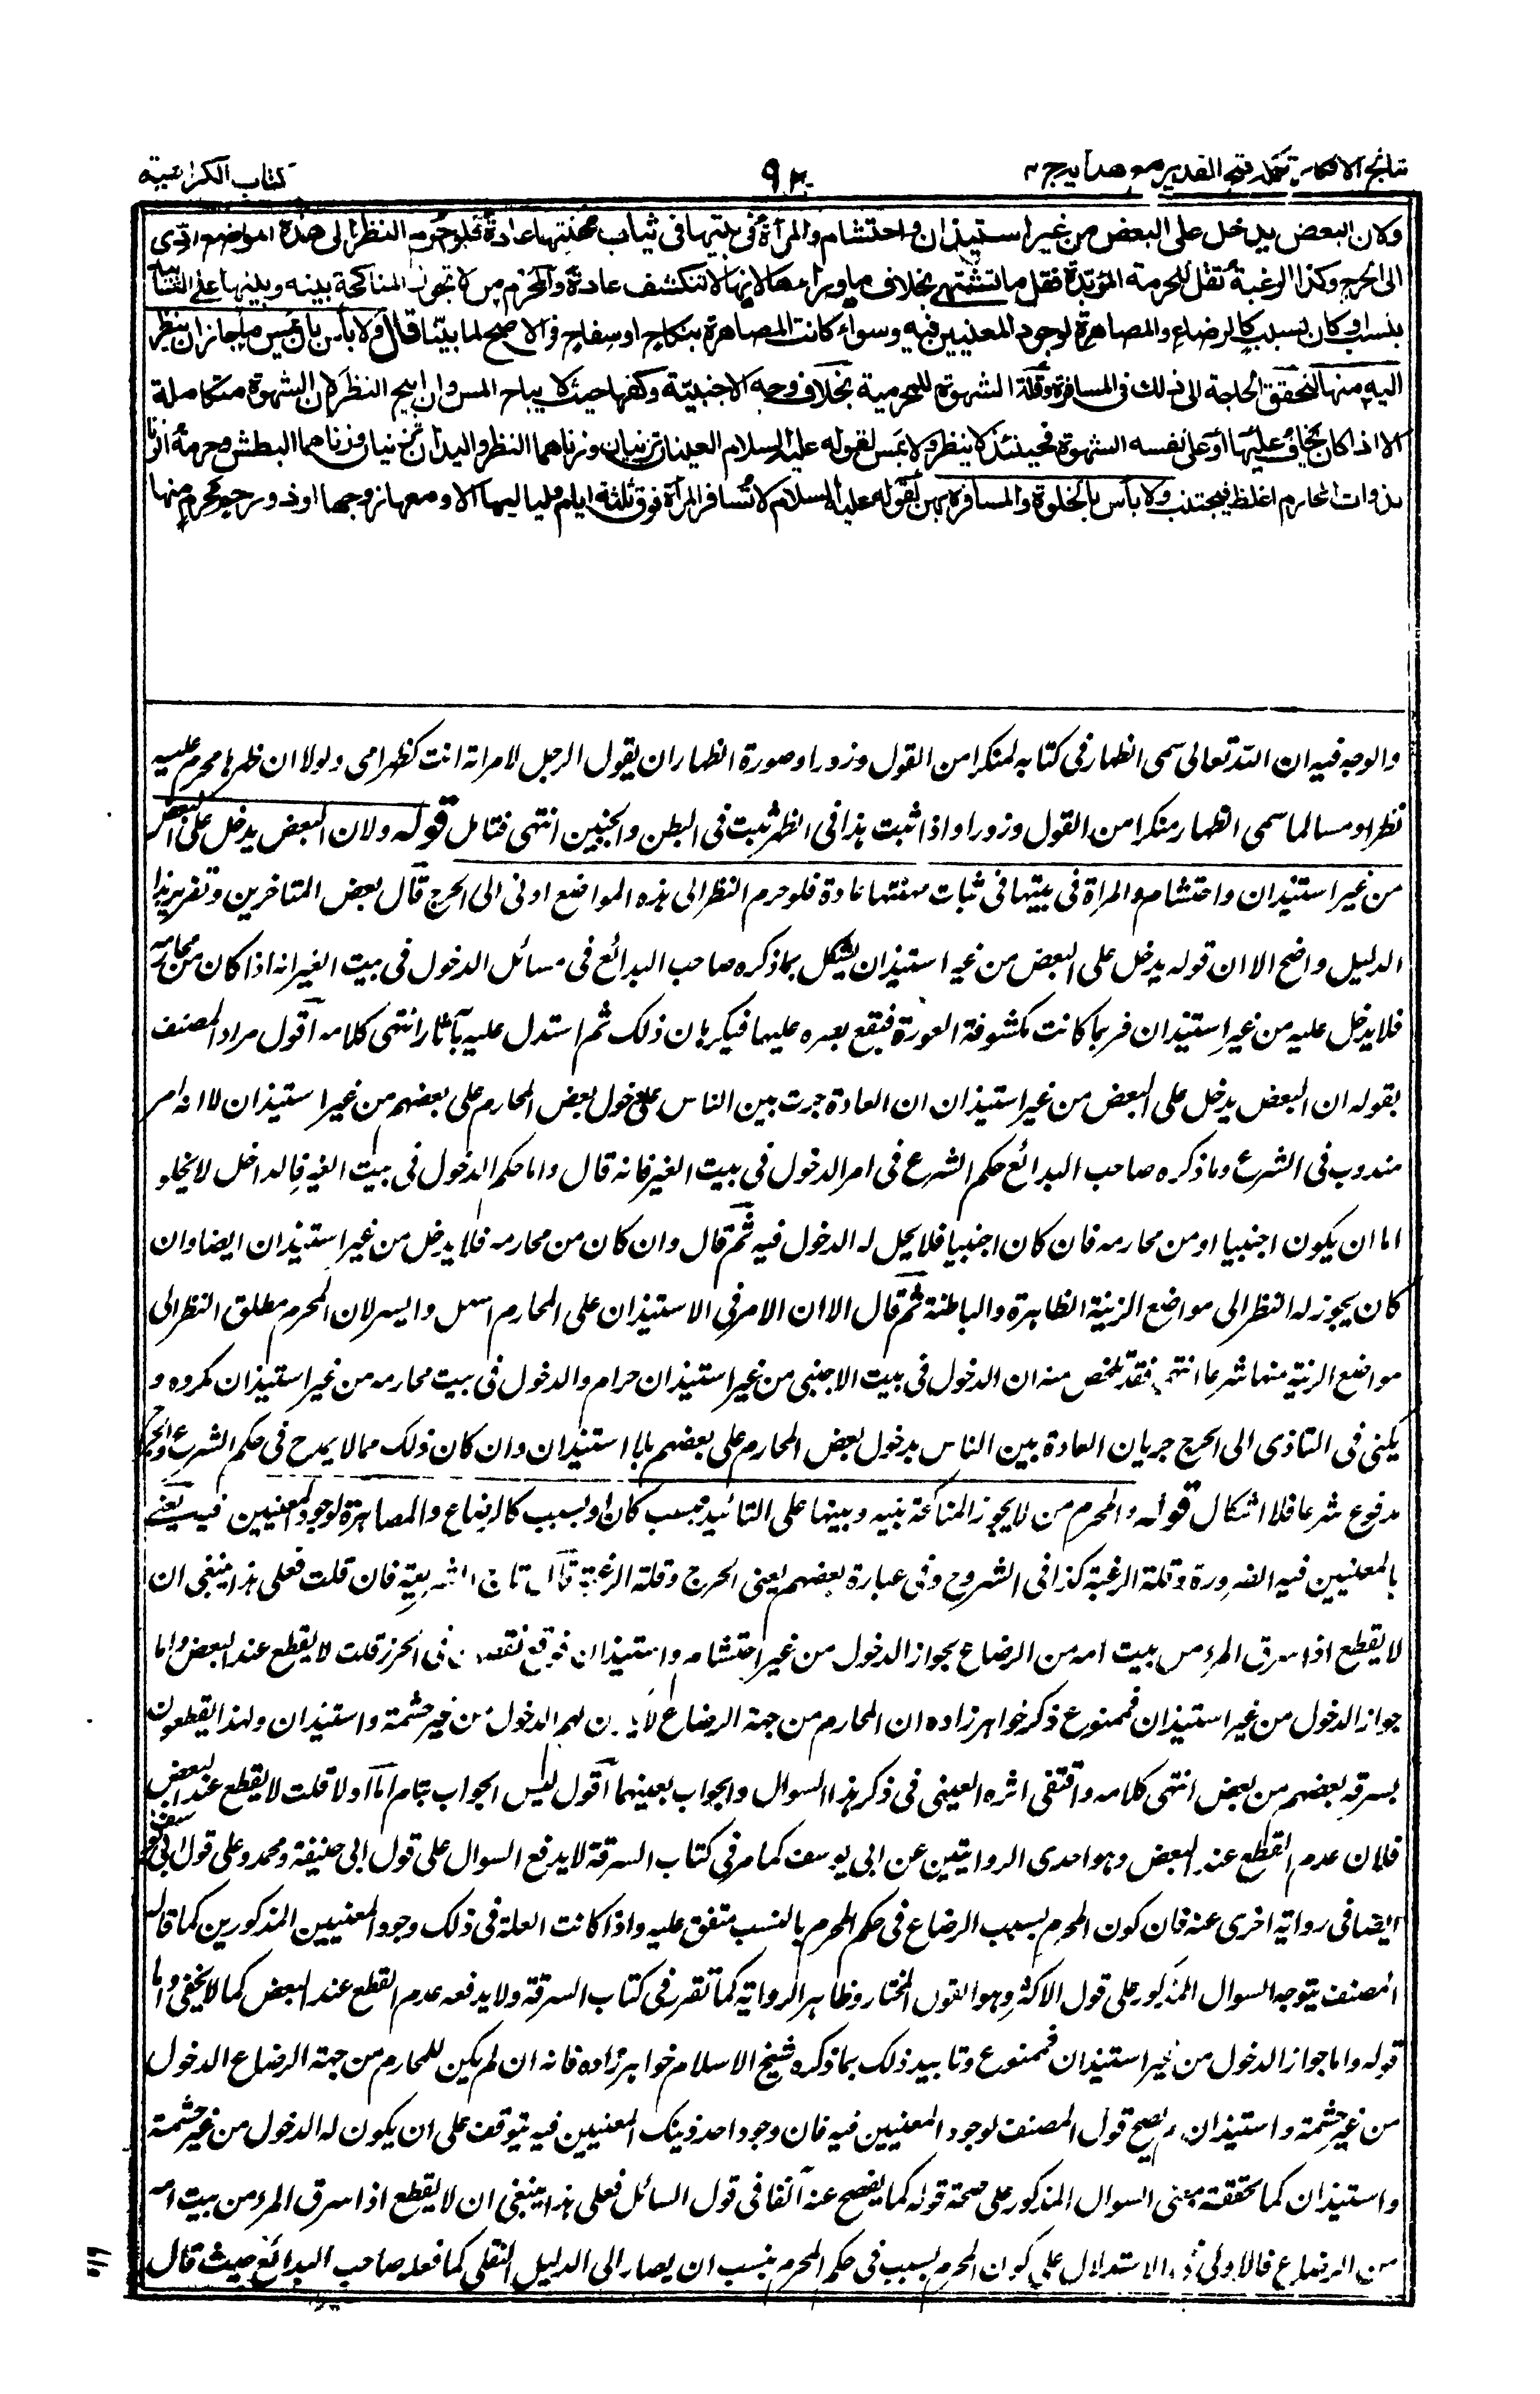 نتائج الافكار تكملة فتح القدير مع هدايه ج ٤
٩٣
كتاب الكراهية
ولان البعض يدخل على البعض من غير استيذان واحتشام والمرأة فى بيتها فى ثياب مهنتها عادة فلو حرم النظر الى هذه المواضع ادى
الى الحرج وكذا الرغبة تقل للحرمة المؤبدة فقل ما تشتهى بخلاف ما وراءها لانها لا تنكشف عادة والمحرم من لا تجوز المناكحة بينه وبينها على التابيد
بنسب او كان بسبب كالرضاع والمصاهرة لوجود المعنيين فيه وسواء كانت المصاهرة بنكاح او سفاح فى الاصح لما بينا قال ولا بأس بان يمس ما جاز ان ينظر
اليه منها لتحقق الحاجة الى ذلك فى المسافرة وقلة الشهوة للمحرمية بخلاف وجه الاجنبية وكفها حيث لا يباح المس وان ابيح النظر لان الشهوة متكاملة
الا اذا كان يخاف عليها او على نفسه الشهوة فحينئذ لا ينظر ولا يمس لقوله عليه السلام العينان تزنيان وزناهما النظر واليدان تزنيان وزناهما البطش وحرمة الزنا
بذوات المحارم اغلظ فيجتنب ولا بأس بالخلوة والمسافرة بهن لقوله عليه السلام لا تسافر المرأة فوق ثلثة ايام ولياليها الا ومعها زوجها او ذو رحم محرم منها
والوجه فيه ان الله تعالى سمى الظهار فى كتابه لمنكرا من القول وزورا وصورة الظهار ان يقول الرجل لامراته انت كظهر امى ولولا ان ظهرها محرم عليه
نظرا ومسا لما سمى الظهار منكرا من القول وزورا واذا ثبت هذا فى الظهر ثبت فى البطن والجنبين انتهى فتامل قوله ولان البعض يدخل على البعض
من غير استيذان واحتشام والمراة فى بيتها فى ثبات مهنتها عادة فلو حرم النظر الى هذه المواضع ادى الى الحرج قال بعض المتاخرين وتقرير هذا
الدليل واضح الا ان قوله يدخل على البعض من غير استيذان يشكل بما ذكره صاحب البدائع فى مسائل الدخول فى بيت الغير انه اذا كان من محارمه
فلا يدخل عليه من غير استيذان فربما كانت مكشوفة العورة فيقع بصره عليها فيكرهان ذلك ثم استدل عليه بآثار انتهى كلامه اقول مراد المصنف
بقوله ان البعض يدخل على البعض من غير استيذان ان العادة جرت بين الناس على دخول بعض المحارم على بعضهم من غير استيذان لا انه امر
مندوب فى الشرع وما ذكره صاحب البدائع حكم الشرع فى امر الدخول فى بيت الغير فانه قال واما حكم الدخول فى بيت الغير فالداخل لا يخلو
اما ان يكون اجنبيا او من محارمه فان كان اجنبيا فلا يحل له الدخول فيه ثم قال وان كان من محارمه فلا يدخل من غير استيذان ايضا وان
كان يجوز له النظر الى مواضع الزينة الظاهرة والباطنة ثم قال الا ان الامر فى الاستيذان على المحارم اسهل وايسر لان المحرم مطلق النظر الى
مواضع الزينة منها شرعا انتهى فقد تلخص منه ان الدخول فى بيت الاجنبى من غير استيذان حرام والدخول فى بيت محارمه من غير استيذان مكروه و
يكفى فى التاذى الى الحرج جريان العادة بين الناس بدخول بعض المحارم على بعضهم بلا استيذان وان كان ذلك مما لا يمدح فى حكم الشرع والحرج
مدفوع شرعا فلا اشكال قوله والمحرم من لا يجوز المناكحة بينه وبينها على التائيد بنسب كان او بسبب كالرضاع والمصاهرة لوجود المعنيين فيه يعنى
بالمعنيين فيه الضرورة وقلة الرغبة كذا فى الشروح وفى عبارة بعضهم يعنى الحرج وقلة الرغبة قال تاج الشريعة فان قلت فعلى هذا ينبغى ان
لا يقطع اذا سرق المرء من بيت امه من الرضاع بجواز الدخول من غير احتشام واستيذان فوقع نقصان فى الحرز قلت لا يقطع عند البعض واما
جواز الدخول من غير استيذان فممنوع ذكر خواهر زاده ان المحارم من جهة الرضاع لا يكون لهم الدخول من غير حشمة واستيذان ولهذا يقطعون
بسرقة بعضهم من بعض انتهى كلامه واقتفى اثره العينى فى ذكر هذا السوال والجواب بعينهما اقول ليس الجواب بتام اما اولا قلت لا يقطع عند البعض
فلان عدم القطع عند البعض وهو احدى الروايتين عن ابى يوسف كما مر فى كتاب السرقة لا يدفع السوال على قول ابى حنيفة ومحمد وعلى قول ابى يوسف
ايضا فى رواية اخرى عنه فان كون المحرم بسبب الرضاع فى حكم المحرم بالنسب متفق عليه واذا كانت العلة فى ذلك وجود المعنيين المذكورين كما قاله
المصنف يتوجه السوال المذكور على قول الاكثر وهو القول المختار وظاهر الرواية كما تقرر فى كتاب السرقة ولا يدفعه عدم القطع عند البعض كما لا يخفى واما
قوله واما جواز الدخول من غير استيذان فممنوع وتاييد ذلك بما ذكره شيخ الاسلام خواهر زاده فانه ان لم يكن للمحارم من جهة الرضاع الدخول
من غير حشمة واستيذان لم يصح قول المصنف لوجود المعنيين فيه فان وجود احد ذينك المعنيين فيه يتوقف على ان يكون له الدخول من غير حشمة
واستيذان كما تحققته مبنى السوال المذكور على صحة قوله كما يفصح عنه آنفا فى قول السائل فعلى هذا ينبغى ان لا يقطع اذا سرق المرء من بيت امه
من الرضاع فالاولى فى الاستدلال على كون المحرم بسبب فى حكم المحرم بنسب ان يصار الى الدليل النقلى كما فعله صاحب البدائع حيث قال